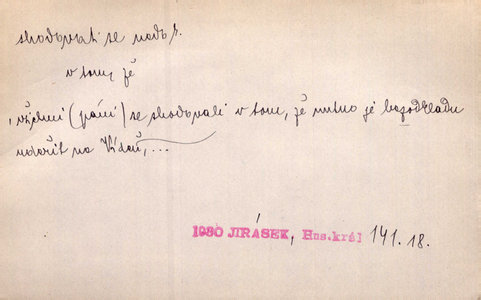 shodovati se nadož.
v tom, že
, všichni (páni) se shodovali v tom, že nutno je bezodkladu
udeřit na Vídeň, ...
1930 JIRÁSEK, Hus.král 141.18.